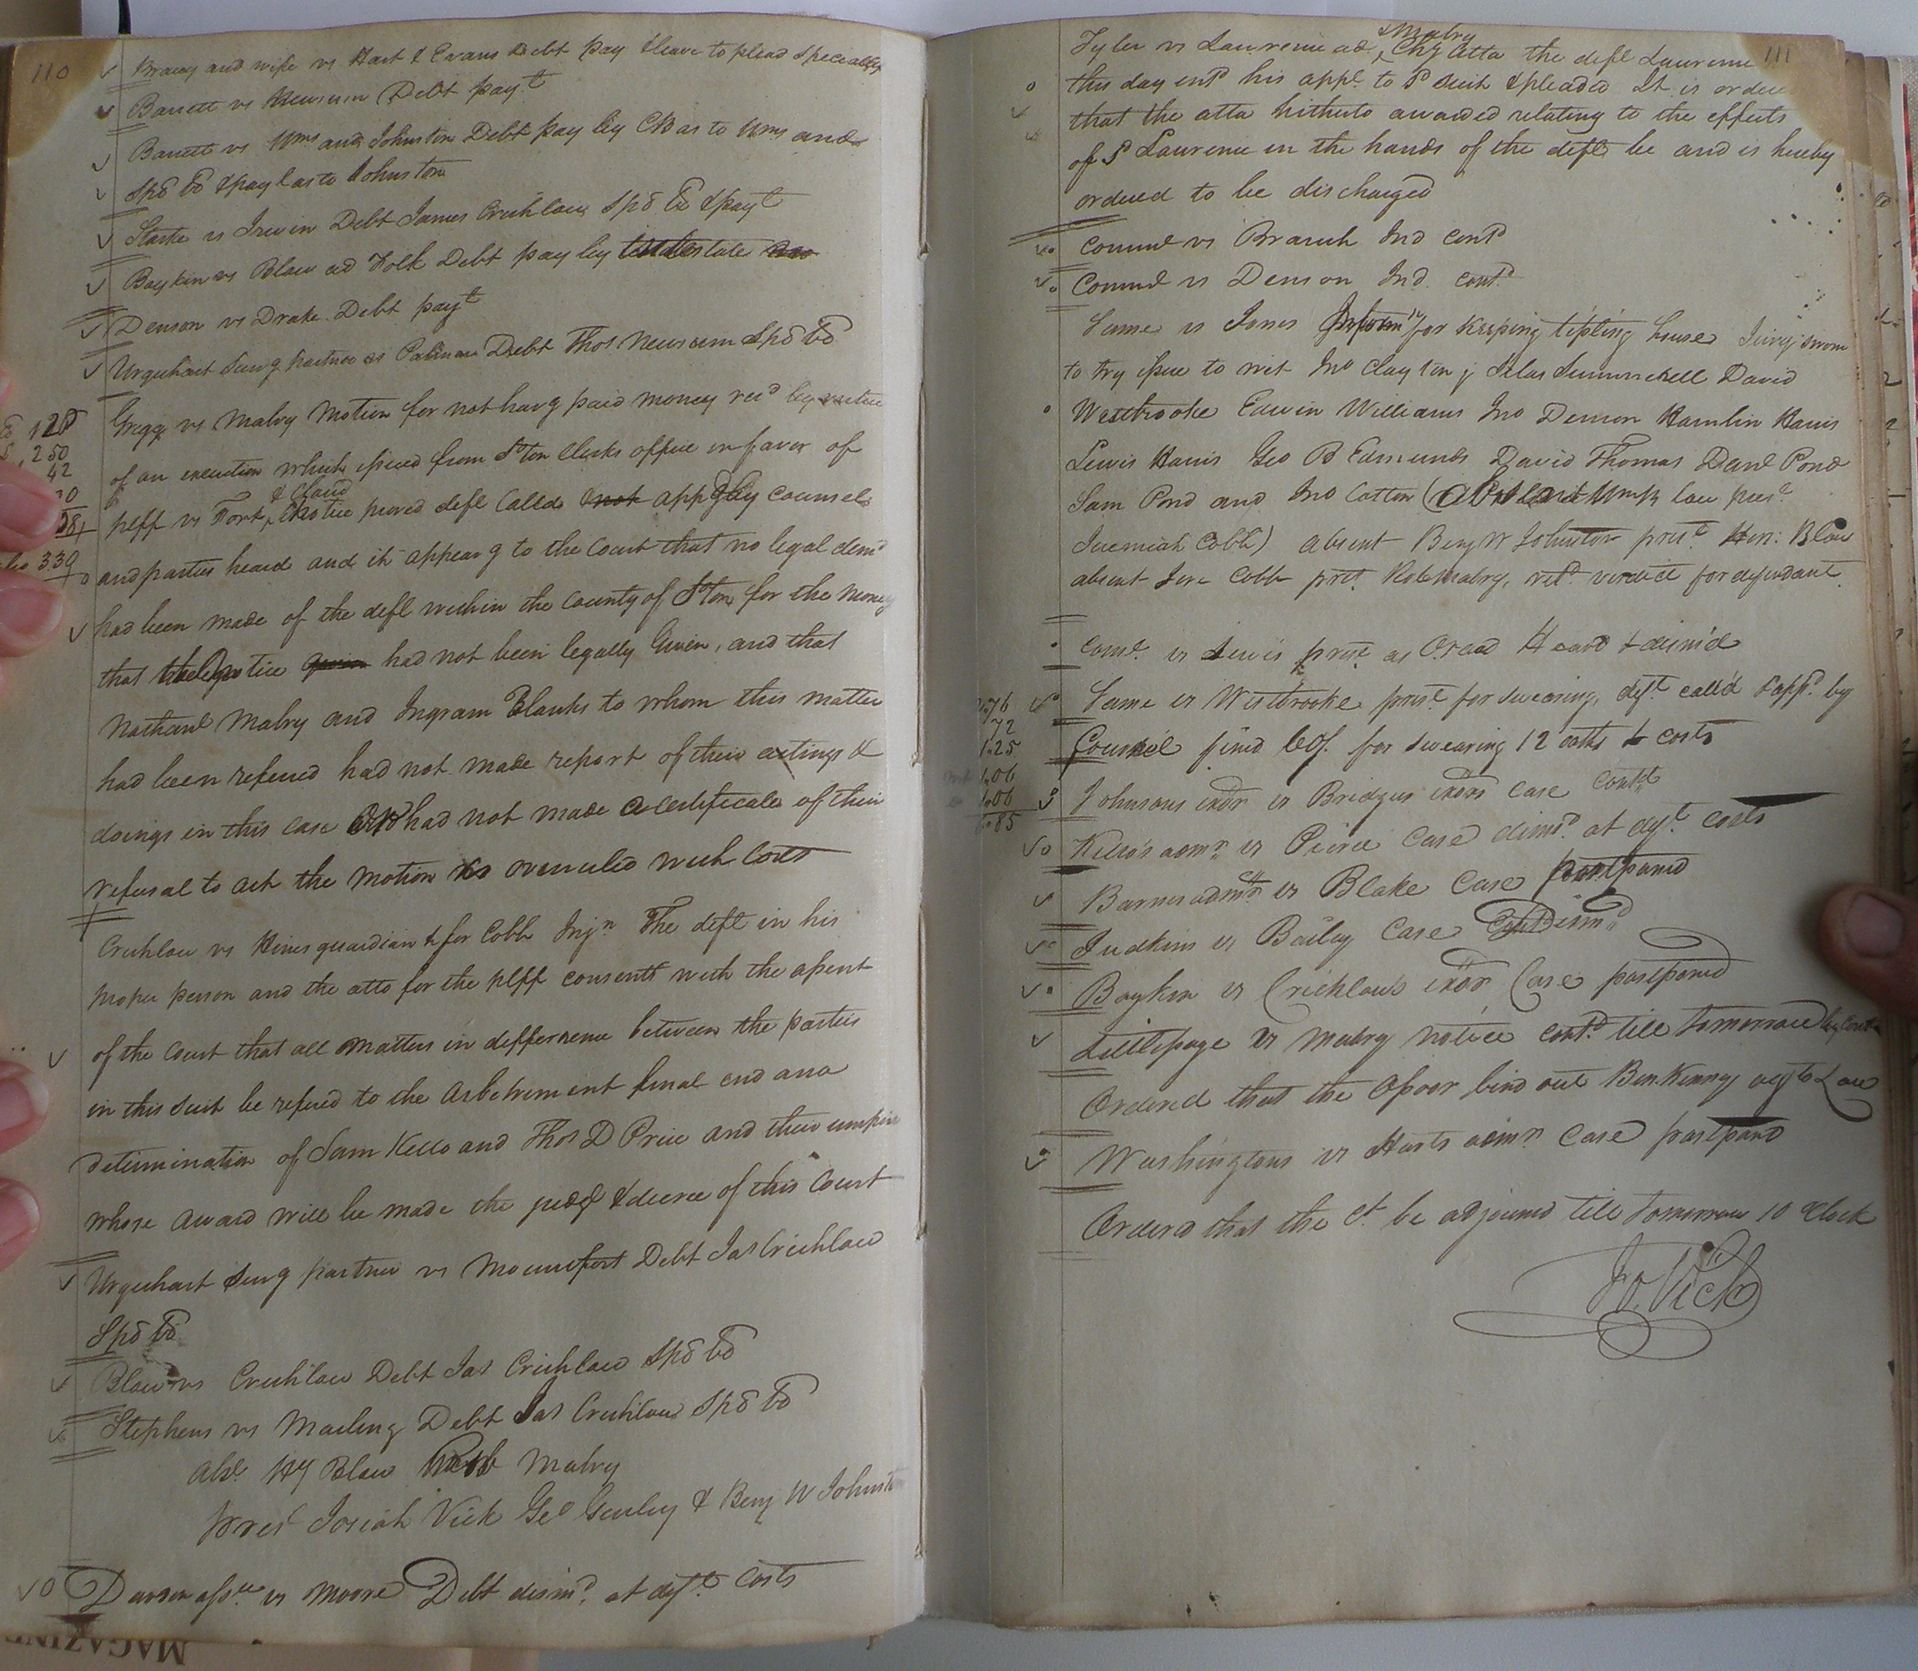 110
Bracy and wife vs Hart & Evans Debt pay & leave to plead specially
Barrett vs Newsum Debt payt
Barrett vs Wms and Johnston Debt pay by CB as to Wms and
Spd Bd & pay as to Johnston
vs Irwin Debt James Crichlow Spd Bd & payt
Boykin vs Blow ad Folk Debt pay by
Denson vs Drake Debt payt
Urquhart Survg partner vs Debt Thos Newsum Spd Bd
Gregg vs Mabry Motion for not havg paid money recd by virtue
of an execution which issued from Ston Clerks office in favor of
plff vs Fort & Claud, notice proved deft Called & not appg by Counsel
and parties heard and it appearg to the Court that no legal demd
had been made of the deft within the County of Ston for the Money
that the Notice given had not been legally Given, and that
Nathanl Mabry and Ingram Blanks to whom this matter
had been referred had not made report of their actings &
doings in this case or had not made a certificate of their
refusal to act the motion is overruled with Costs
Crichlow vs Hines guardian &c for Cobb Injn The deft in his
proper person and the atto for the plff consents with the assent
of the Court that all matters in difference between the parties
in this suit be refered to the Arbitrement final end and
determination of Sam Kello and Thos D Price and their umpire
whose award will be made the judgt & decree of this Court
Urquhart Survg partner vs Mounfort Debt Jas Crichlow
Spd Bd
Blow vs Crichlow Debt Jas Crichlow Spd Bd
Stephens vs Debt Jas Crichlow Spd Bd
Abst Hy Blow Mabry
Prest Josiah Vick Geo Gurley & Benj W Johnston
Dawson assee vs Moore Debt dismd at defts Costs
111
Tyler vs Laurence ad & Mabry Chy atta the deft Laurence
this day entd his appe to sd suit & pleaded It is ordered
that the atta hitherto awarded relating to the effects
of sd Laurence in the hands of the deft be and is hereby
ordered to be discharged
Commw vs Branch Ind contd
Commw vs Denson Ind contd
Same vs Jones Inform for Keeping tipling house Jury sworn
to try issue to wit Jno Clayton Silas Summerell David
Westbrooke Edwin Williams Jno Denson Hamlin Harris
Lewis Harris Geo B Edmunds David Thomas Danl Pond
Sam Pond and Jno Cotton
Jeremiah Cobb) absent Benj W Johnston prest Hen: Blow
absent Jere Cobb prest Mabry, retd verdict for defendant
Comw vs Lewis prest as O. road Heard & dismd
Same vs Westbrooke prest for swearing, deft calld & appd by
Counsel fined for swearing 12 oaths & costs
Johnsons exor vs Bridges exors Case contd
Kello's admr vs Peirce Case dismd at deft costs
Barnes admr vs Blake Case postponed
Judkins vs Bailey Case Dismd
Boykin vs Crichlow's exor Case postponed
Littlepage vs Mabry notice contd till tomorrow by Court
Ordered that the Opoor bind out Ben Kenny agt Law
Washingtons vs Harts admr Case postpond
Ordered that the Ct be adjourned till tomorrow 10 oClock
Jo. Vick
MAGAZINE